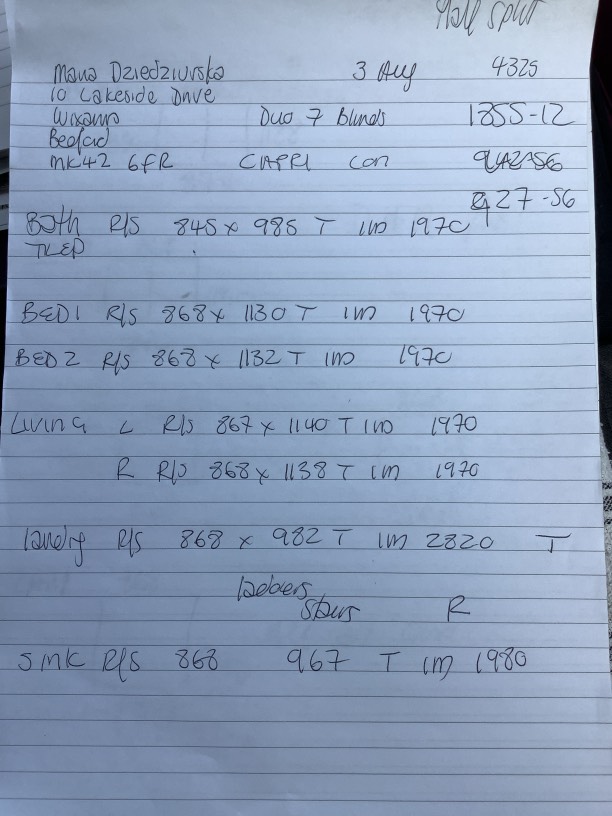 Half Split
Maria Dziedziurska 3 Aug 4325
10 Lakeside Drive
Wixams Duo 7 Blinds 1355-12
Bedford
MK42 6FR CAPRI con
27-56
Bath R/S 845 x 985 T IM 1970
TILED
BED1 R/S 868 x 1130 T IM 1970
BED 2 R/S 868 x 1132 T IM 1970
Living L R/S 867 x 1140 T IM 1970
R R/S 868 x 1138 T IM 1970
landing R/S 868 x 982 T IM 2820 T
ladders
stairs R
SMK R/S 868 967 T IM 1980